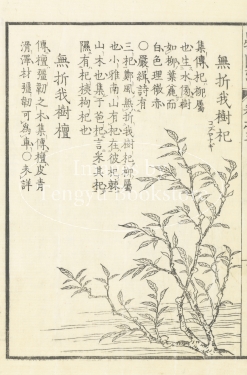 無折我樹杞
集傳杞柳屬
也生水傍樹
如柳葉麤而
白色理微赤
○嚴緝詩有
三杞鄭風無折我樹杞柳屬
也小雅南山有杞在彼杞棘
山木也集于苞杞言采其杞
隰有杞桋枸杞也
無折我樹檀
傳檀彊韌之木集傳檀皮青
滑澤材彊韌可為車○未詳